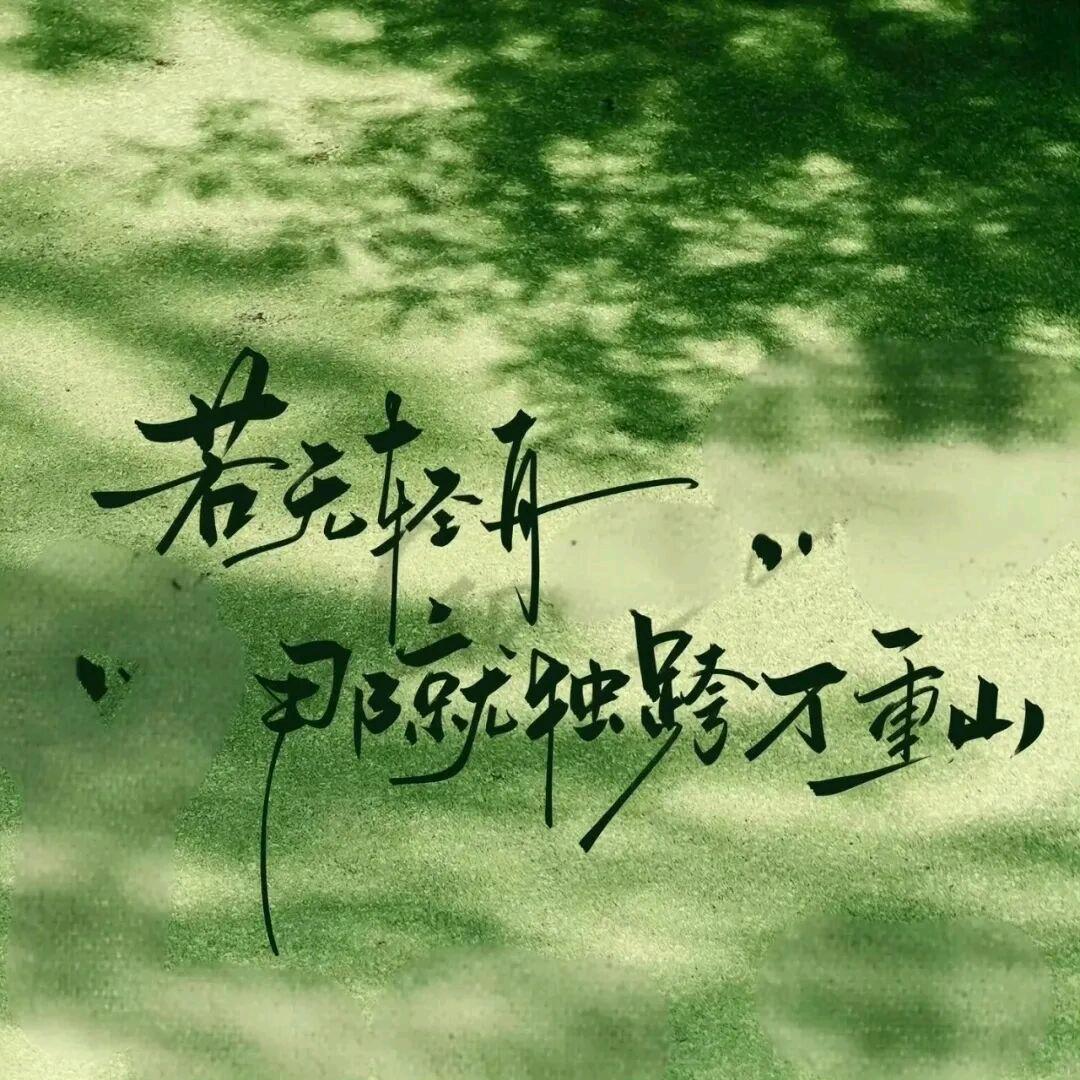 若无轻舟
"那就独跨万重山"